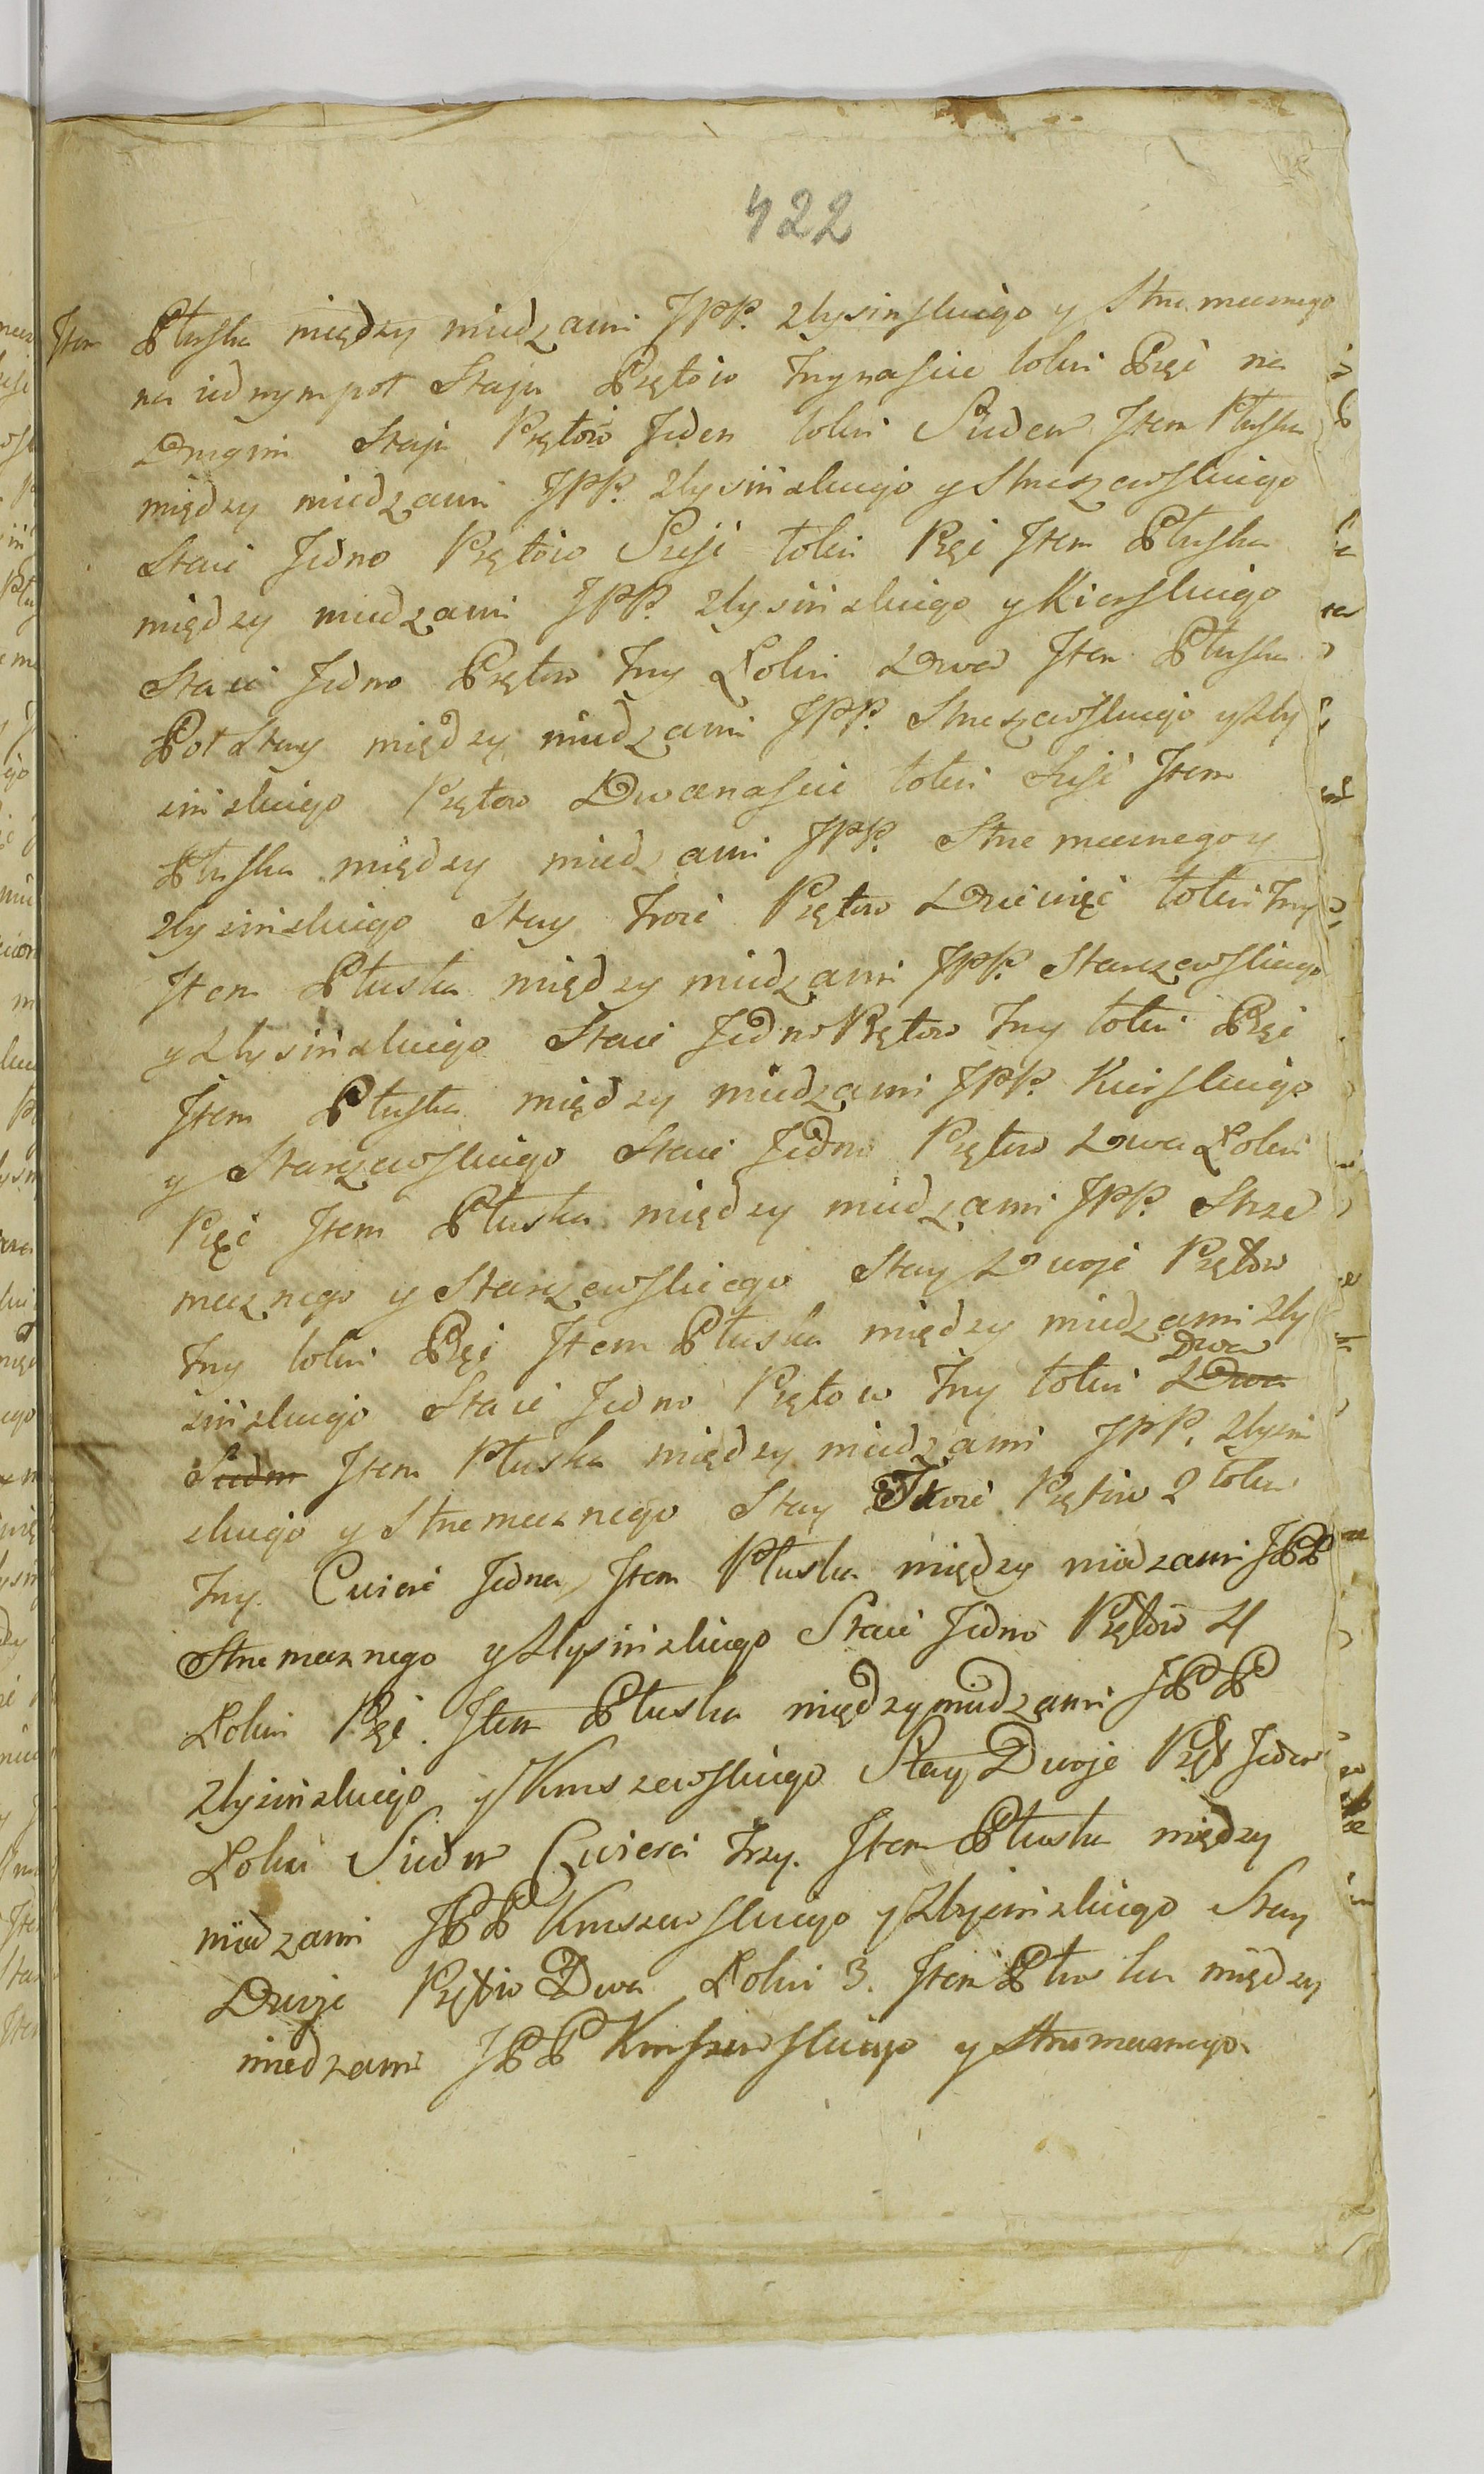 422
Item Płuska między miedzami JPP. Złysinskiego y Strzemecznego
na iednympoł Staju Prętów Trzynascie łokci Pięć na
Drugim Staju Prętów Jeden łokci Siedem Item Płuska
między miedzami JPP. Złysińskiego y Stuszewskiego
Staie Jedno Prętów Sześć łokci Pięć Item Płuska
między miedzami JPP. Złysińskiego y Kierskiego
Staie Jedno Prętów Trzy Łokci Dwa Item Płuska
Poł Stay między miedzami JPP. Stuszewskiego y Zły
sińskiego Prętow Dwanascie łokci Sześć Item
Płuska między miedzami JPP. Strzemecznego y
Złysińskiego Stay Troie Prętow Dziewięć łokci Trzy
Item Płuska między miedzami JPP. Starzewskiego
y Złysińskiego Staie Jedno Prętow Trzy łokci Pięć
Item Płuska między miedzami JPP. Kierskiego
y Starzewskiego Staie Jedno Prętow Dwa Łokci
Pięć Item Płuska między miedzami JPP. Strze
mecznego y Starzewskiego Stay Dwoje Prętów
Trzy łokci Pięć Item Płuska między miedzami Zły
sińskiego Staie Jedno Prętow Trzy łokci Dwa Dwa
Siedm Item Płuska między miedzami JPP. Złysin
skiego y Strzemecznego Stay Troie Prętów 2 łokci
Trzy. Cwierć Jedna, Item Płuska między miedzami JPP
Strzemecznego y Złysińskiego Staie Jedno Prętów 4
Łokci Pięć. Item Płuska między miedzami JPP
Złysińskiego y Kruszewskiego Stay Dwoje Pręt Jeden
Łokci Siedm Cwierci Trzy. Item Płuska między
miedzami JPP Kruszewskiego y Złysińskiego Stay
Dwoje Prętów Dwa Łokci 3. Item Płuska między
miedzami JPP Kruszewskiego y Strzemecznego